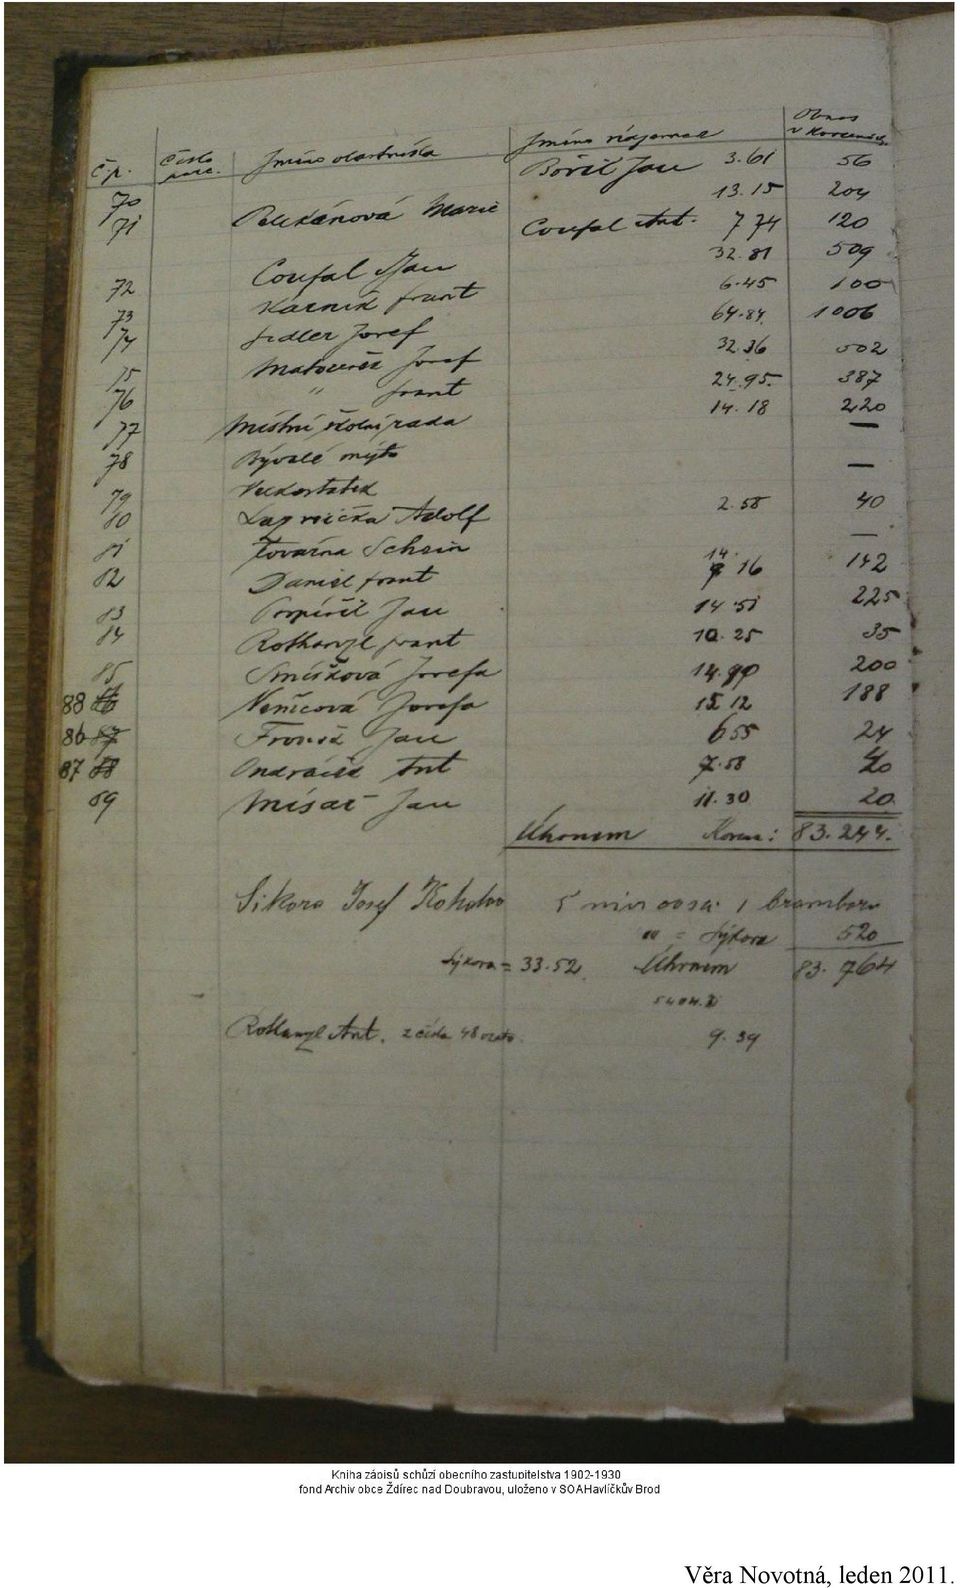 Č.p. Číslo parc. Jméno vlastníka Jméno nájemce Obnos v Korunách
70 Bořil Jan 3.61 56
71 Pelikánová Marie 13.15 204
Coufal Ant. 7 74 120
72 Coufal Jan 32.81 509
73 Karník Frant 6.45 100
74 Fidler Josef 64.84 1006
75 Josef 32.36 502
76 " Frant 24.95 387
77 Místní školní rada 14.18 220
78 Bývalé mýto —
79 Velkostatek —
80 Adolf 2.58 40
81 Továrna Schein —
82 Daniel Frant 14 16 142
83 Pospíšil Jan 14.51 225
84 Rothanzl Frant 10.25 35
85 Smíšková Josefa 14.90 200
88 86 Josefa 15.12 188
86 87 Jan 6 55 24
87 88 Ondráček Ant 7.58 40
89 Misař Jan 11.30 20
Úhrnem Korun: 83.244.
Sikora Josef Kohoutov 5 1 brambory
= Sýkora 520
Sýkora = 33.52 Úhrnem 83.764
Rothanzl Ant. z čísla 48 9.39
Kniha zápisů schůzí obecního zastupitelstva 1902-1930
fond Archiv obce Ždírec nad Doubravou, uloženo v SOAHavlíčkův Brod
Věra Novotná, leden 2011.